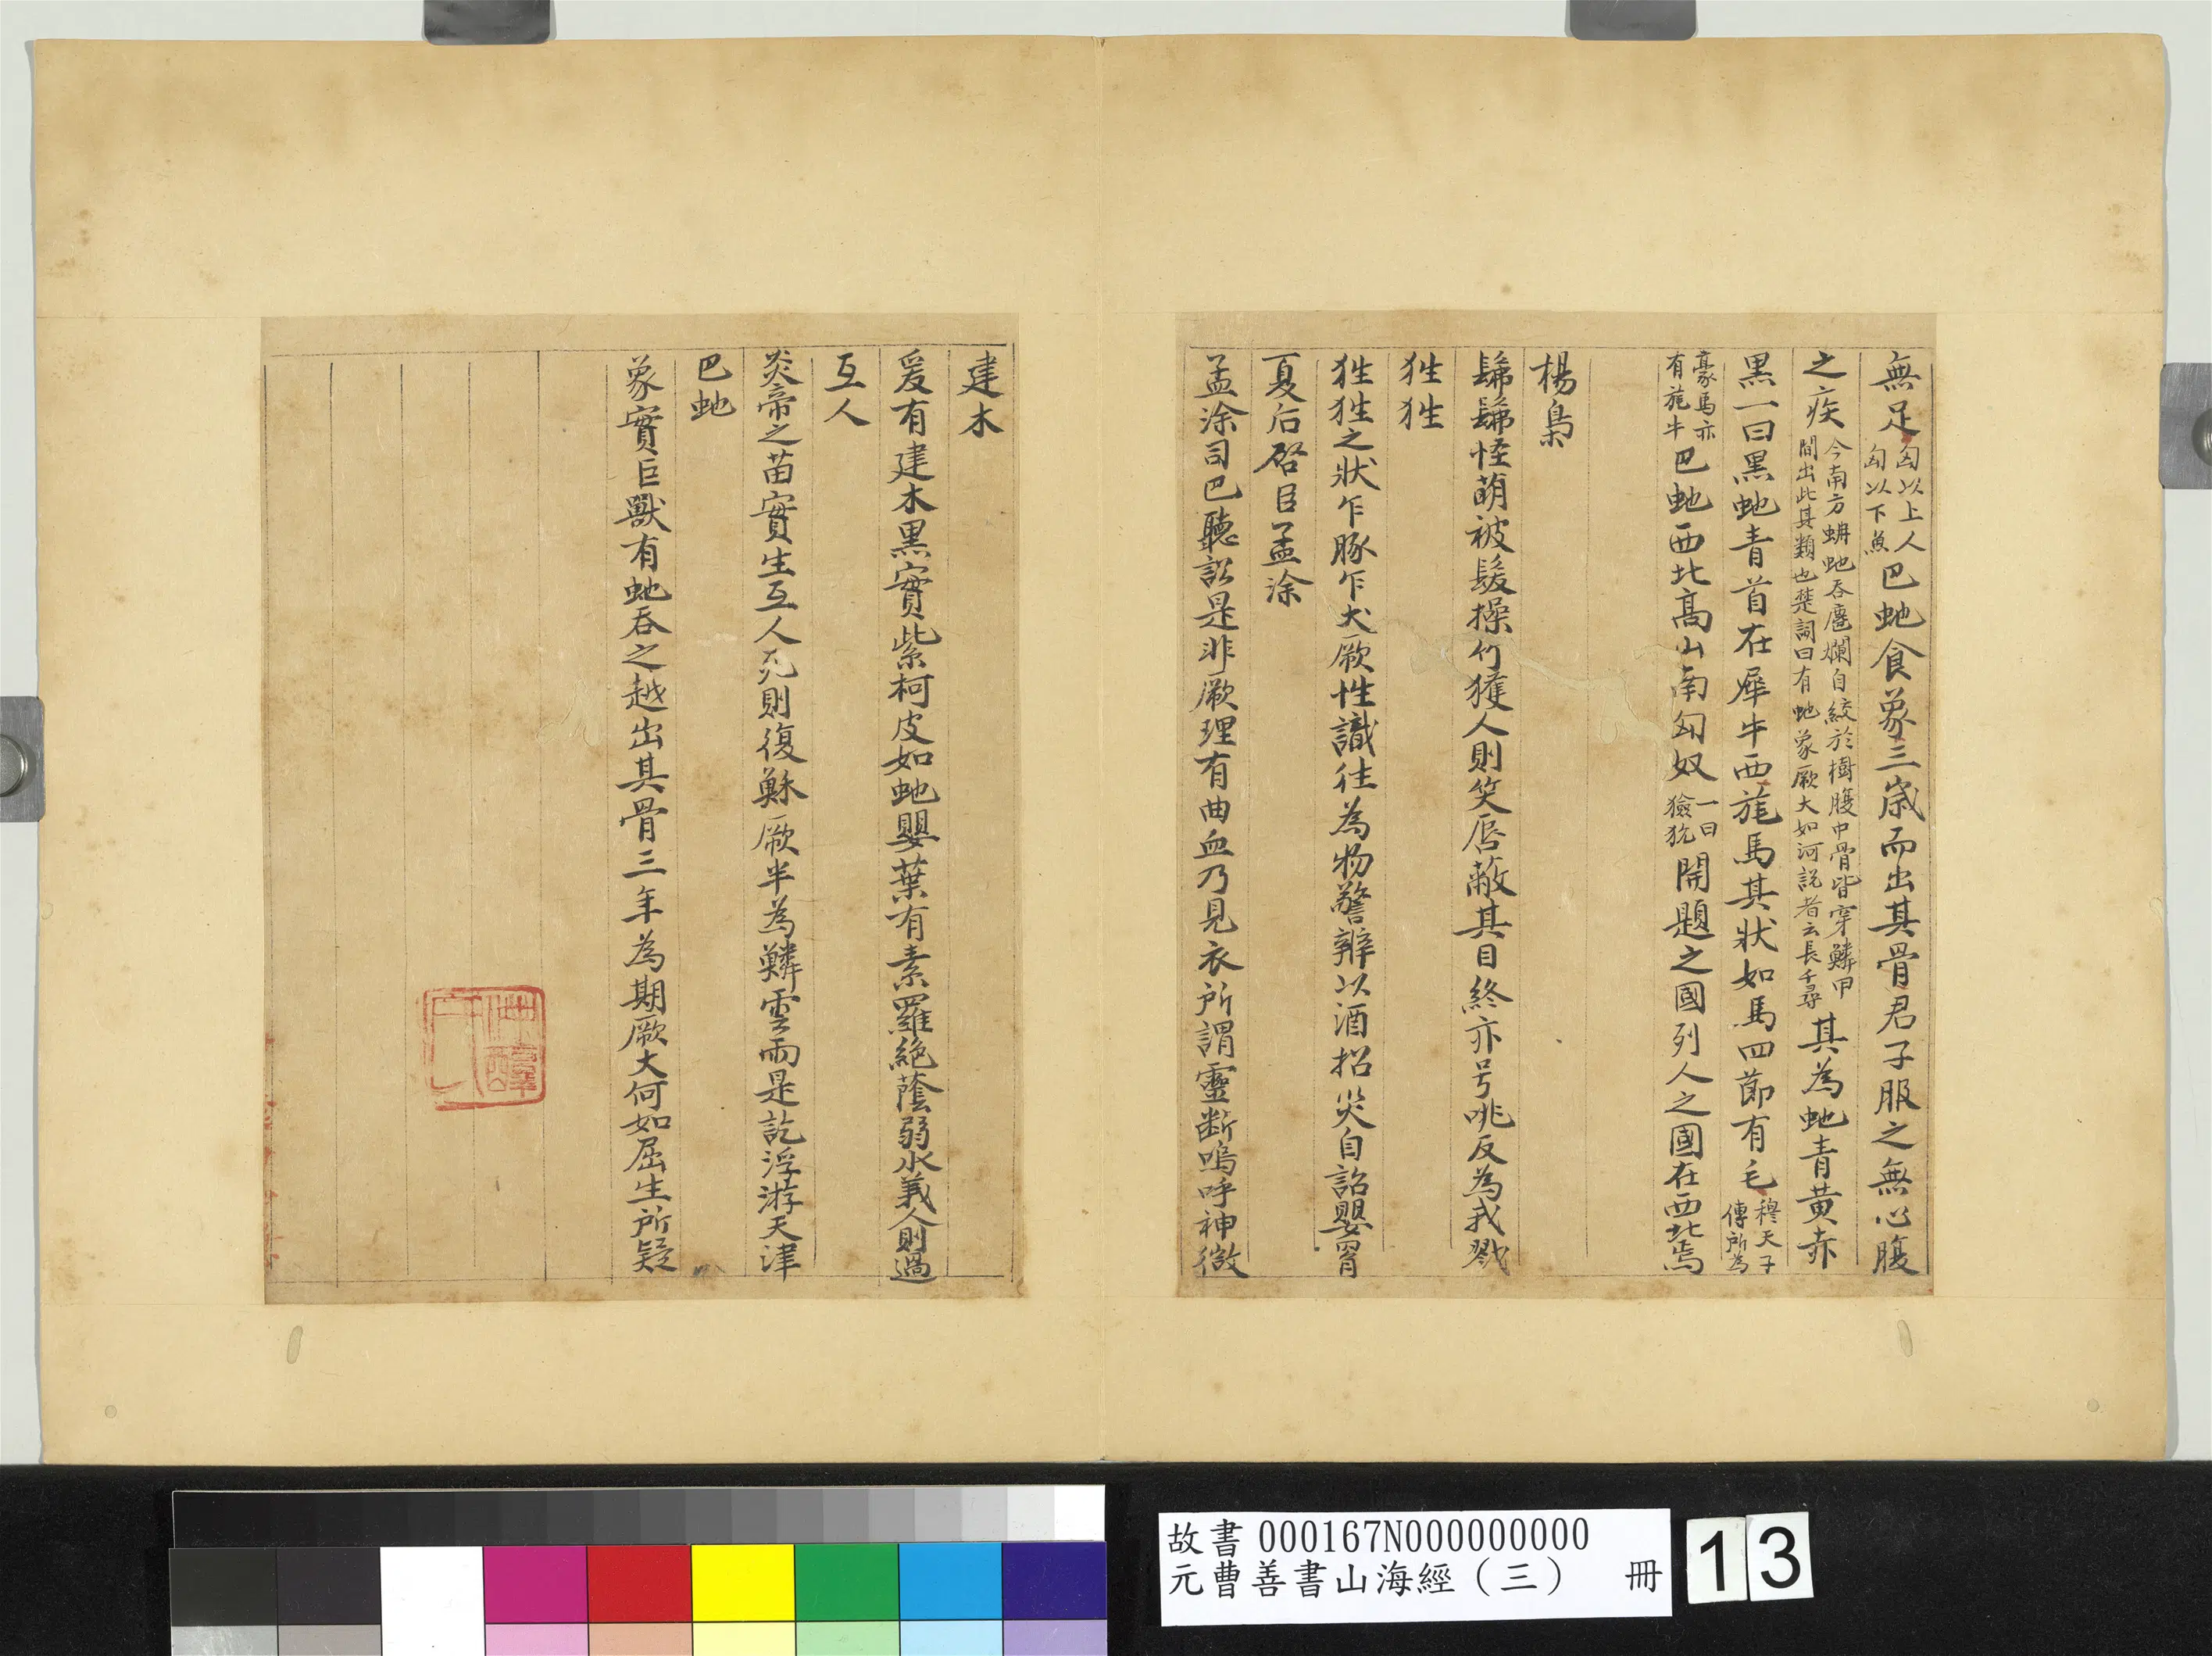 無足匈以上人匈以下魚巴虵食象三歲而出其骨君子服之無心腹
之疾今南方蚺虵吞鹿爛自絞於樹腹中骨皆穿鱗甲間出此其類也楚詞曰有虵象厥大如河說者云長千尋其為虵青黃赤
黑一曰黑虵青首在犀牛西旄馬其狀如馬四節有毛穆天子傳所為
豪馬亦有旄牛巴虵西北高山南匈奴一曰獫狁開題之國列人之國在西北焉
楊梟
髴髴怪萌被髮操竹獲人則笑唇蔽其目終亦号咷反為我戮
狌狌
狌狌之狀乍豚乍犬厥性識往為物警辨以酒招災自詒嬰罥
夏后啓臣孟涂
孟涂司巴聽訟是非厥理有曲血乃見衣所謂靈断嗚呼神微
建木
爰有建木黑實紫柯皮如虵嬰葉有素羅絕蔭弱水義人則過
互人
炎帝之苗實生互人死則復穌厥半為鱗雲雨是訖浮游天津
巴虵
象實巨獸有虵吞之越出其骨三年為期厥大何如屈生所疑
故書 000167N000000000
元曹善書山海經（三） 冊
13